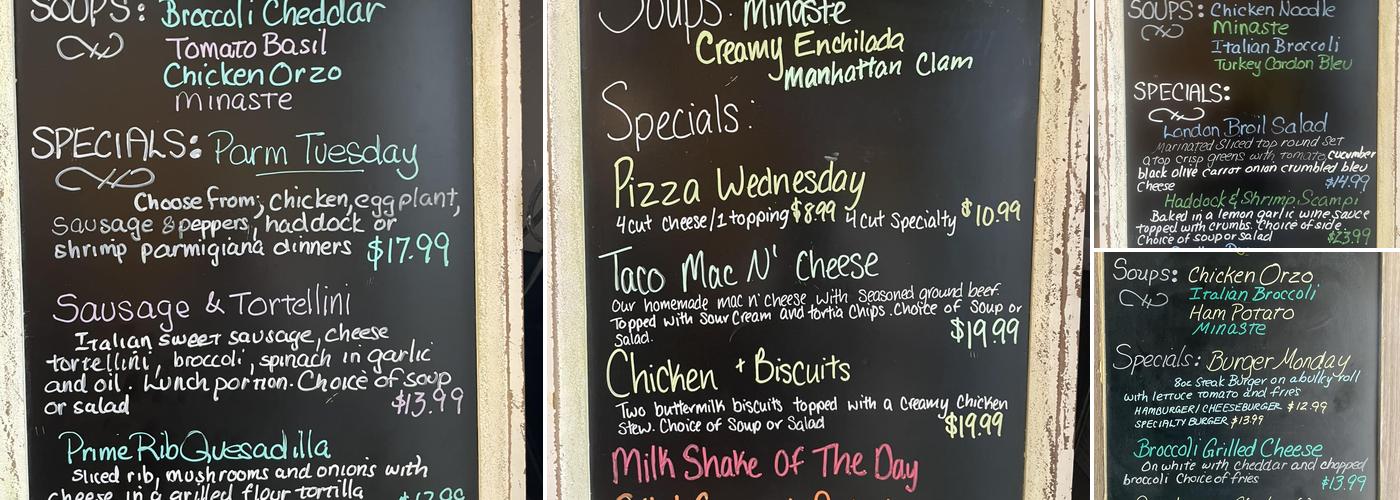 SOUPS: Broccoli Cheddar
Tomato Basil
Chicken Orzo
Minaste
SPECIALS: Parm Tuesday
Choose from; chicken, eggplant,
sausage & peppers, haddock or
shrimp parmigiana dinners $17.99
Sausage & Tortellini
Italian sweet sausage, cheese
tortellini, broccoli, spinach in garlic
and oil. Lunch portion. Choice of soup
or salad $13.99
Prime Rib Quesadilla
Sliced rib, mushrooms and onions with
cheese in a grilled flour tortilla
Soups: Minaste
Creamy Enchilada
Manhattan Clam
Specials:
Pizza Wednesday
4 cut cheese/1 topping $8.99 4 cut Specialty $10.99
Taco Mac N' Cheese
Our homemade mac n' cheese with seasoned ground beef.
Topped with Sour Cream and tortia Chips. Choice of Soup or
Salad. $19.99
Chicken + Biscuits
Two buttermilk biscuits topped with a Creamy Chicken
Stew. Choice of Soup or Salad $19.99
Milk Shake Of The Day
SOUPS: Chicken Noodle
Minaste
Italian Broccoli
Turkey Cordon Bleu
SPECIALS:
London Broil Salad
Marinated sliced top round set
atop crisp greens with tomato cucumber
black olive carrot onion crumbled bleu
cheese $14.99
Haddock & Shrimp Scampi
Baked in a lemon garlic wine sauce
topped with crumbs. Choice of side.
Choice of soup or salad $23.99
Soups: Chicken Orzo
Italian Broccoli
Ham Potato
Minaste
Specials: Burger Monday
8oz Steak Burger on a bulky roll
with lettuce tomato and fries
HAMBURGER/CHEESEBURGER $12.99
SPECIALTY BURGER $13.99
Broccoli Grilled Cheese
On white with cheddar and chopped
broccoli Choice of fries $13.99